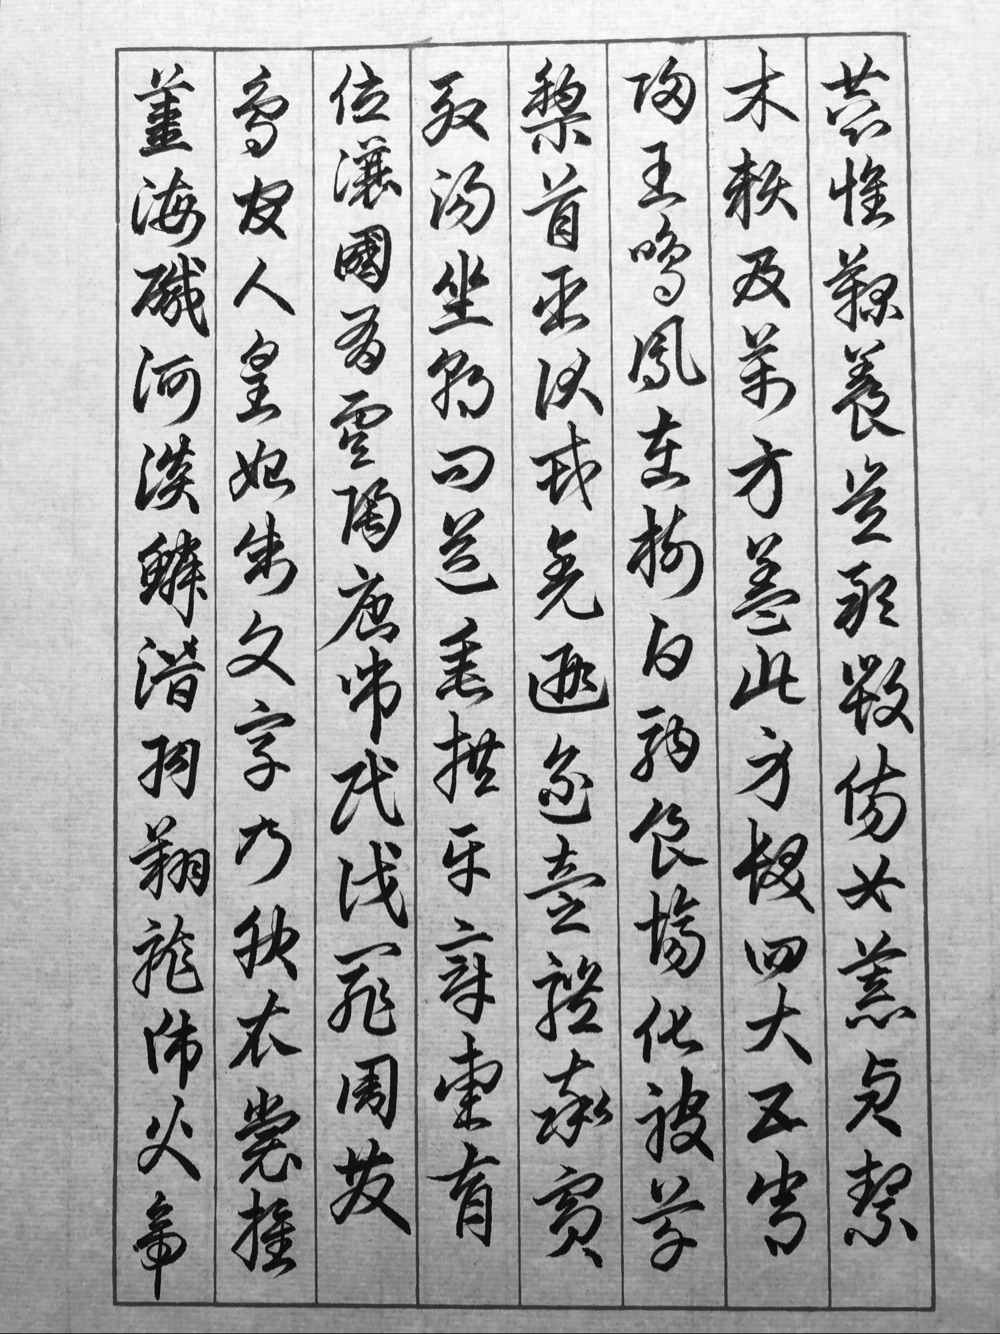 薑海鹹河淡鱗潛羽翔龍師火帝
鳥官人皇始制文字乃服衣裳推
位讓國有虞陶唐弔民伐罪周發
殷湯坐朝問道垂拱平章愛育
黎首臣伏戎羌遐邇壹體率賓
歸王鳴鳳在樹白駒食場化被草
木賴及萬方蓋此身髮四大五常
恭惟鞠養豈敢毀傷女慕貞絜